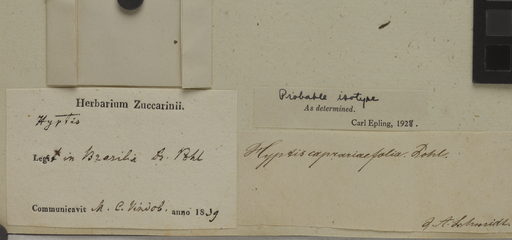 Herbarium Zuccarinii.
Hyptis
Legit in Brasilia Dr. Pohl
Communicavit M. C. Vindob. anno 1839
Probable isotype
As determined.
Carl Epling, 1928.
Hyptis caprariaefolia. Pohl.
J. A. Schmidt.